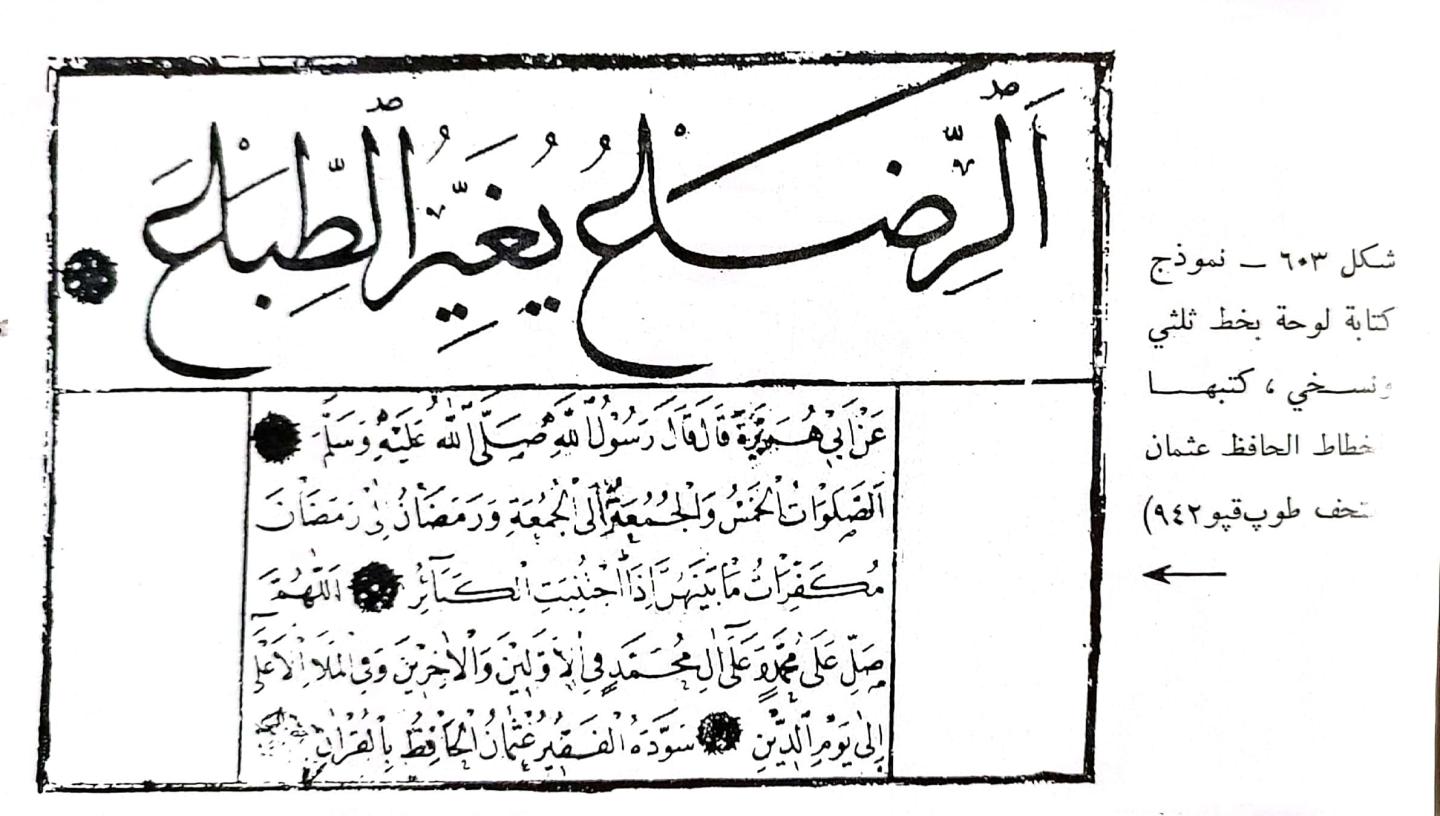 اَلرِّضَاعُ يُغَيِّرُ الطِّبَاعَ
عَنْ اَبِي هُرَيْرَةَ قَالَ قَالَ رَسُولُ اللّٰهِ صَلَّى اللّٰهُ عَلَيْهِ وَسَلَّمَ
اَلصَّلَوَاتُ الْخَمْسُ وَالْجُمُعَةُ اِلَى الْجُمُعَةِ وَرَمَضَانُ اِلٰى رَمَضَانَ
مُكَفِّرَاتٌ مَا بَيْنَهُنَّ اِذَا اجْتُنِبَتِ الْكَبَآئِرُ اَللّٰهُمَّ
صَلِّ عَلٰى مُحَمَّدٍ وَعَلٰٓى اٰلِ مُحَمَّدٍ فِي الْاَوَّلِينَ وَالْاٰخِرِينَ وَفِي الْمَلَاِ الْاَعْلٰى
اِلٰى يَوْمِ الدِّينِ سَوَّدَهُ الْفَقِيرُ عُثْمَانُ الْحَافِظُ بِالْقُرْاٰنِ
شكل ٦٠٣ — نموذج
كتابة لوحة بخط ثلثي
ونسخي ، كتبهـا
لخطاط الحافظ عثمان
متحف طوپ‌قپو ٩٤٢)